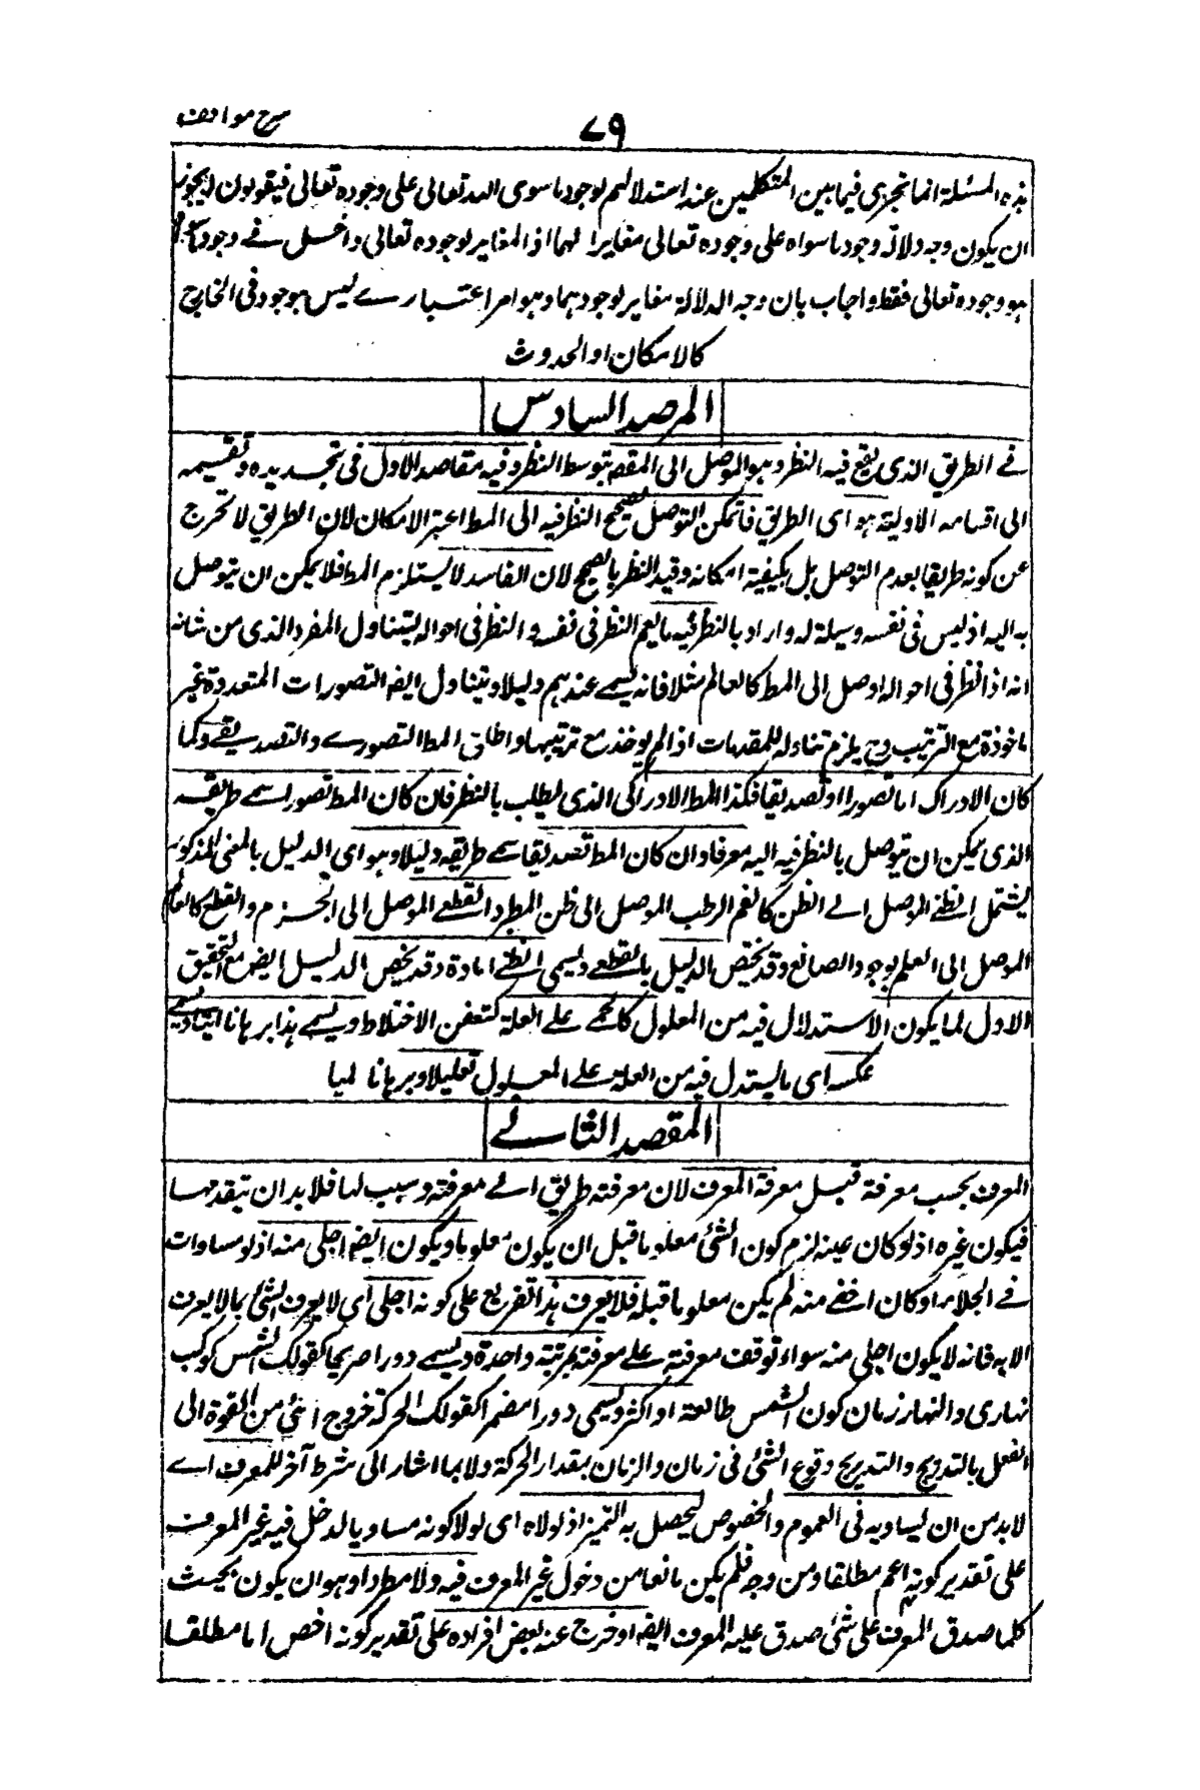 شرح مواقف
٧٩
هذه المسئلة انما تجرى فيما بين المتكلمين عند استدلالهم بوجود ما سوى الله تعالى على وجوده تعالى فيقولون لا يجوز
ان يكون وجه دلالة وجود ما سواه على وجوده تعالى مغايرا لهما اذ المغاير لوجوده تعالى داخل فى وجود ما سواه
هو وجوده تعالى فقط واجاب بان وجه الدلالة مغاير لوجودهما وهو امر اعتبارى ليس بموجود فى الخارج
كالامكان او الحدوث
المرصد السادس
فى الطريق الذى يقع فيه النظر وهو الموصل الى المقصد بتوسط النظر وفيه مقاصد الاول فى تحديده وتقسيمه
الى اقسامه الاولية هو اى الطريق ما يمكن التوصل بصحيح النظر فيه الى المط اعتبر الامكان لان الطريق لا تخرج
عن كونه طريقا بعدم التوصل بل يكفيه امكانه وقيد النظر بالصحيح لان الفاسد لا يستلزم المط فلا يمكن ان يتوصل
به اليه اذ ليس فى نفسه وسيلة له واراد بالنظر فيه ما يعم النظر فى نفسه والنظر فى احواله ليتناول المفرد الذى من شانه
انه اذا نظر فى احواله اوصل الى المط كالعالم مثلا فانه يسمى عندهم دليلا ويتناول ايضا التصورات المتعددة غير
ماخوذة مع الترتيب وح يلزم تناوله للمقدمات اذا لم يوخذ مع ترتيبها واطلق المط التصورى والتصديقى وكما
كان الادراك اما تصورا او تصديقا فكذا المط الادراكى الذى يطلب بالنظر فان كان المط تصورا سمى طريقه
الذى يمكن ان يتوصل بالنظر فيه اليه معرفا وان كان المط تصديقا سمى طريقه دليلا وهو اى الدليل بالمعنى المذكور
يشتمل الظنى الموصل الى الظن كالغيم الرطب الموصل الى ظن المطر والقطعى الموصل الى الجزم والقطع كالعالم
الموصل الى العلم بوجود الصانع وقد يختص الدليل بالقطعى ويسمى الظنى امارة وقد يخص الدليل ايضا مع التحقيق
الاول لما يكون الاستدلال فيه من المعلول كالحمى على العلة كتعفن الاختلاط ويسمى هذا برهانا انيا ويسمى
عكسه اى ما يستدل فيه من العلة على المعلول تعليلا وبرهانا لميا
المقصد الثانى
المعرف يجب معرفة قبل معرفة المعرف لان معرفته طريق الى معرفته وسبب لها فلا بد ان يتقدمها
فيكون غيره اذ لو كان عينه لزم كون الشئ معلوما قبل ان يكون معلوما ويكون ايضا اجلى منه اذ لو مساوات
فى الجلاء او كان اخفى منه لم يكن معلوما قبله فلا يعرف هذا تفريع على كونه اجلى اى لا يعرف الشئ بما لا يعرف
الا به فانه لا يكون اجلى منه سواء توقف معرفته على معرفته بمرتبة واحدة ويسمى دورا صريحا كقولك الشمس كوكب
نهارى والنهار زمان كون الشمس طالعة او اكثر ويسمى دورا مضمرا كقولك الحركة خروج الشئ من القوة الى
الفعل بالتدريج والتدريج وقوع الشئ فى زمان والزمان مقدار الحركة ولا بد اشار الى شرط آخر للمعرف اى
لا بد من ان يساويه فى العموم والخصوص ليحصل به التميز اذ لولاه اى لولا كونه مساويا لدخل فيه غير المعرف
على تقدير كونه اعم مطلقا ومن وجه فلم يكن مانعا من دخول غير المعرف فيه ولا مطردا وهو ان يكون بحيث
كلما صدق المعرف على شئ صدق عليه المعرف ايضا او خرج عنه بعض افراده على تقدير كونه اخص اما مطلقا